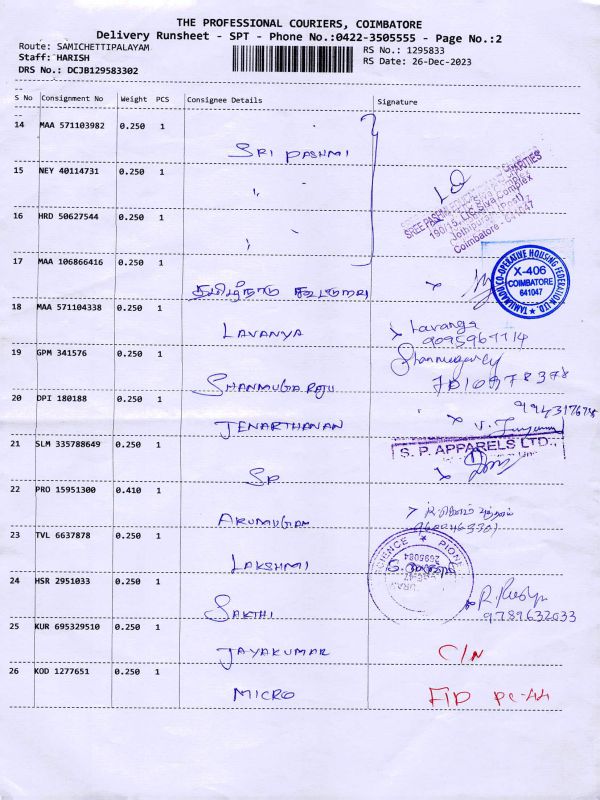 THE PROFESSIONAL COURIERS, COIMBATORE
Delivery Runsheet - SPT - Phone No.:0422-3505555 - Page No.:2
Route: SAMICHETTIPALAYAM RS No.: 1295833
Staff: HARISH RS Date: 26-Dec-2023
DRS No.: DCJB129583302
S No Consignment No Weight PCS Consignee Details Signature
14 MAA 571103982 0.250 1
SRI PASHMI
15 NEY 40114731 0.250 1
16 HRD 50627544 0.250 1
190/15, LIC Siva Complex
Jothipuram (Post)
Coimbatore - 641047
17 MAA 106866416 0.250 1
தமிழ்நாடு கூட்டுறவு
TAMILNADU CO-OPERATIVE HOUSING FEDERATION LTD.
X-406
COIMBATORE
641047
18 MAA 571104338 0.250 1
LAVANYA
Lavanya
9095967714
19 GPM 341576 0.250 1
SHANMUGA RAJU
20 DPI 180188 0.250 1
JENARTHANAN
21 SLM 335788649 0.250 1
SP
S. P. APPARELS LTD.,
22 PRO 15951300 0.410 1
ARUMUGAM
23 TVL 6637878 0.250 1
LAKSHMI
24 HSR 2951033 0.250 1
SAKTHI
9789632033
25 KUR 695329510 0.250 1
JAYAKUMAR C/N
26 KOD 1277651 0.250 1
MICRO F1D PC-44